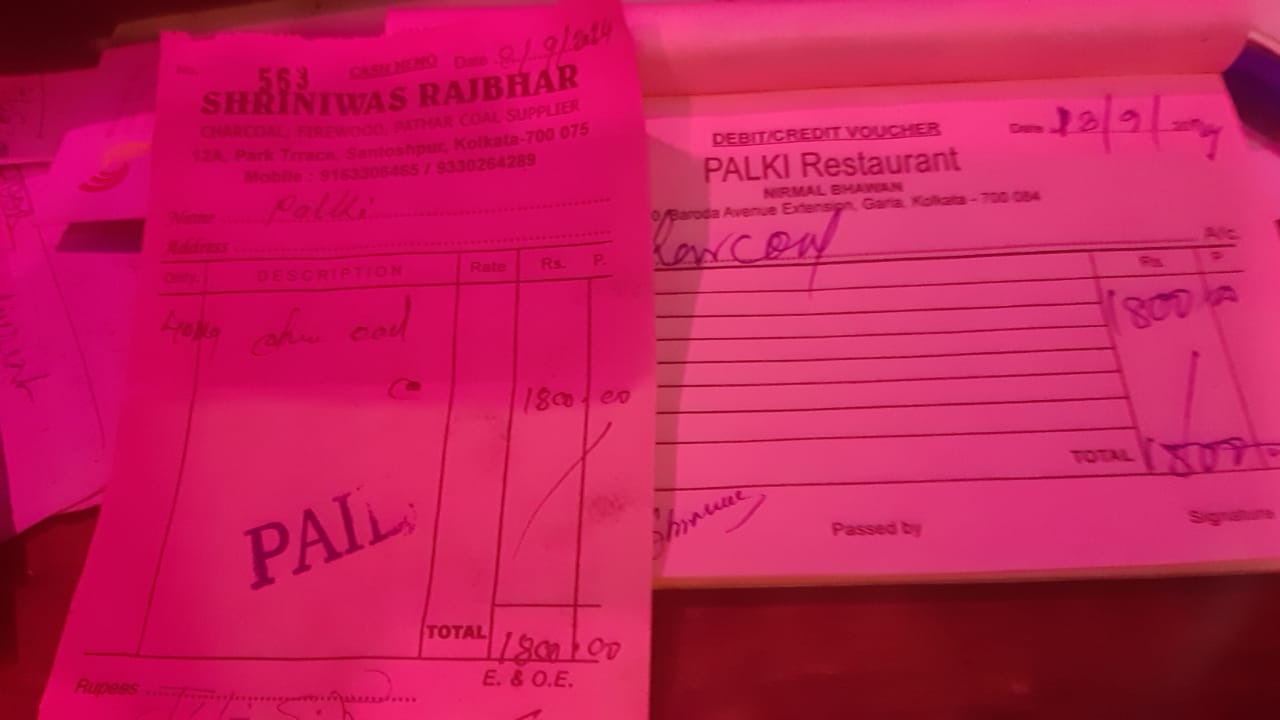 No. 563 CASH MEMO Date 8/9/2024
SHRINIWAS RAJBHAR
CHARCOAL, FIREWOOD, PATHAR COAL SUPPLIER
12A, Park Trrace, Santoshpur, Kolkata-700 075
Mobile : 9163306465 / 9330264289
Name Palki
Address
Qnty. DESCRIPTION Rate Rs. P.
40kg
1800 00
PAI
TOTAL 1800 00
E. & O.E.
Rupees
DEBIT/CREDIT VOUCHER Date 13/9/
PALKI Restaurant
NIRMAL BHAWAN
Baroda Avenue Extension, Garia, Kolkata - 700 084
A/c.
Rs. P.
1800 00
TOTAL 1800
Passed by Signature